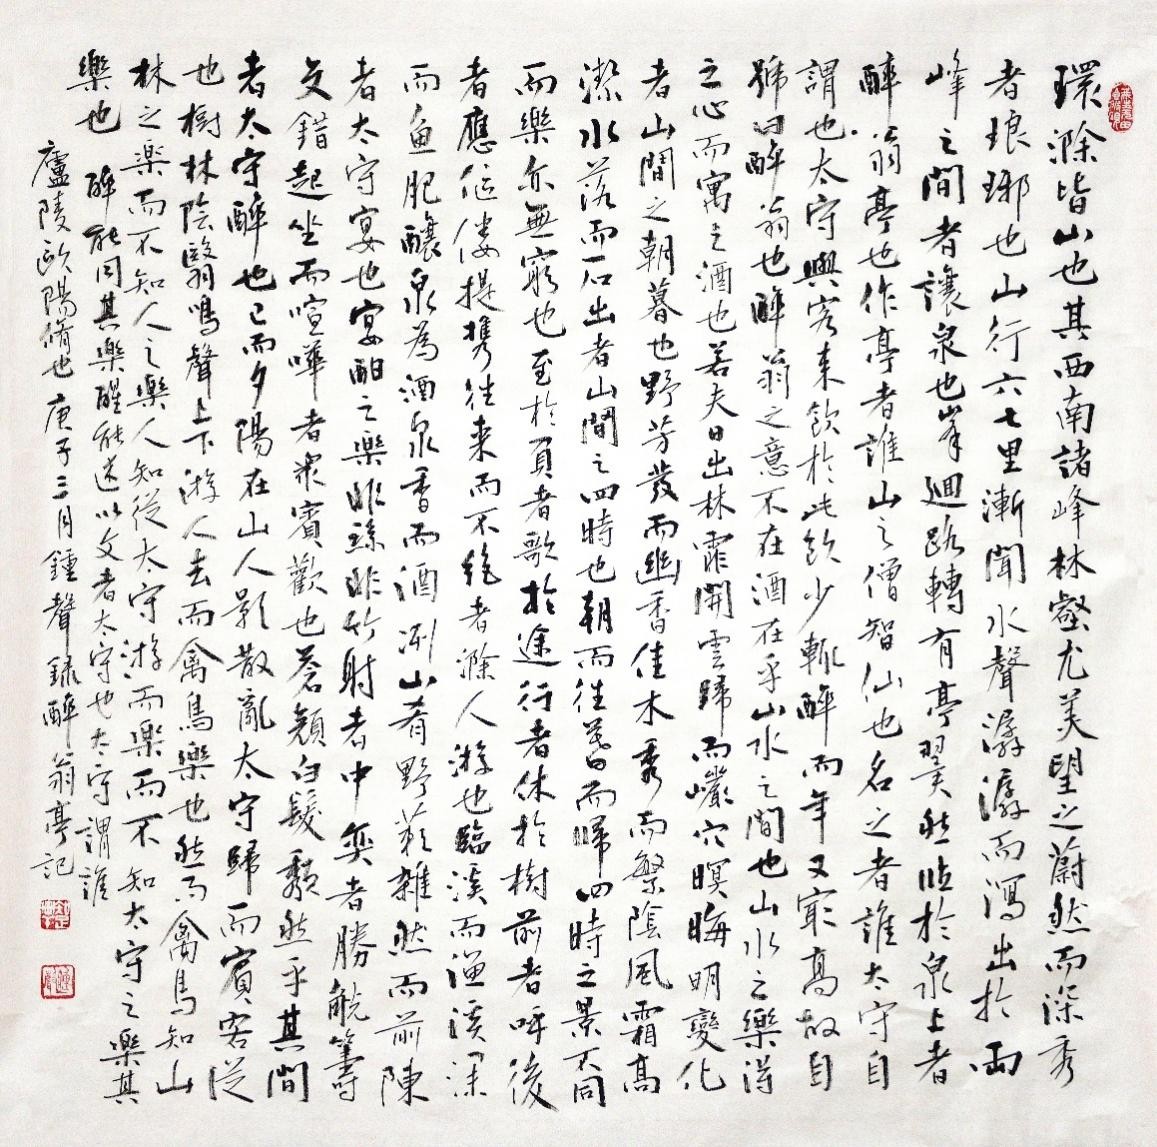 環滁皆山也其西南諸峰林壑尤美望之蔚然而深秀
者琅琊也山行六七里漸聞水聲潺潺而瀉出於兩
峰之間者讓泉也峯迴路轉有亭翼然臨於泉上者
醉翁亭也作亭者誰山之僧智仙也名之者誰太守自
謂也太守與客來飲於此飲少輒醉而年又最高故自
號曰醉翁也醉翁之意不在酒在乎山水之間也山水之樂得
之心而寓之酒也若夫日出林霏開雲歸而巖穴暝晦明變化
者山間之朝暮也野芳發而幽香佳木秀而繁陰風霜高
潔水落而石出者山間之四時也朝而往暮而歸四時之景不同
而樂亦無窮也至於負者歌於途行者休於樹前者呼後
者應傴僂提攜往来而不絶者滁人游也臨溪而漁溪深
而魚肥釀泉為酒泉香而酒洌山肴野蔌雜然而前陳
者太守宴也宴酣之樂非絲非竹射者中奕者勝觥籌
交錯起坐而喧嘩者衆賓歡也蒼顏白髮頹然乎其間
者太守醉也已而夕陽在山人影散亂太守歸而賓客從
也樹林陰翳鳴聲上下游人去而禽鳥樂也然而禽鳥知山
林之樂而不知人之樂人知從太守游而樂而不知太守之樂其
樂也醉能同其樂醒能述以文者太守也太守謂誰
廬陵歐陽脩也 庚子三月鍾聲録醉翁亭記